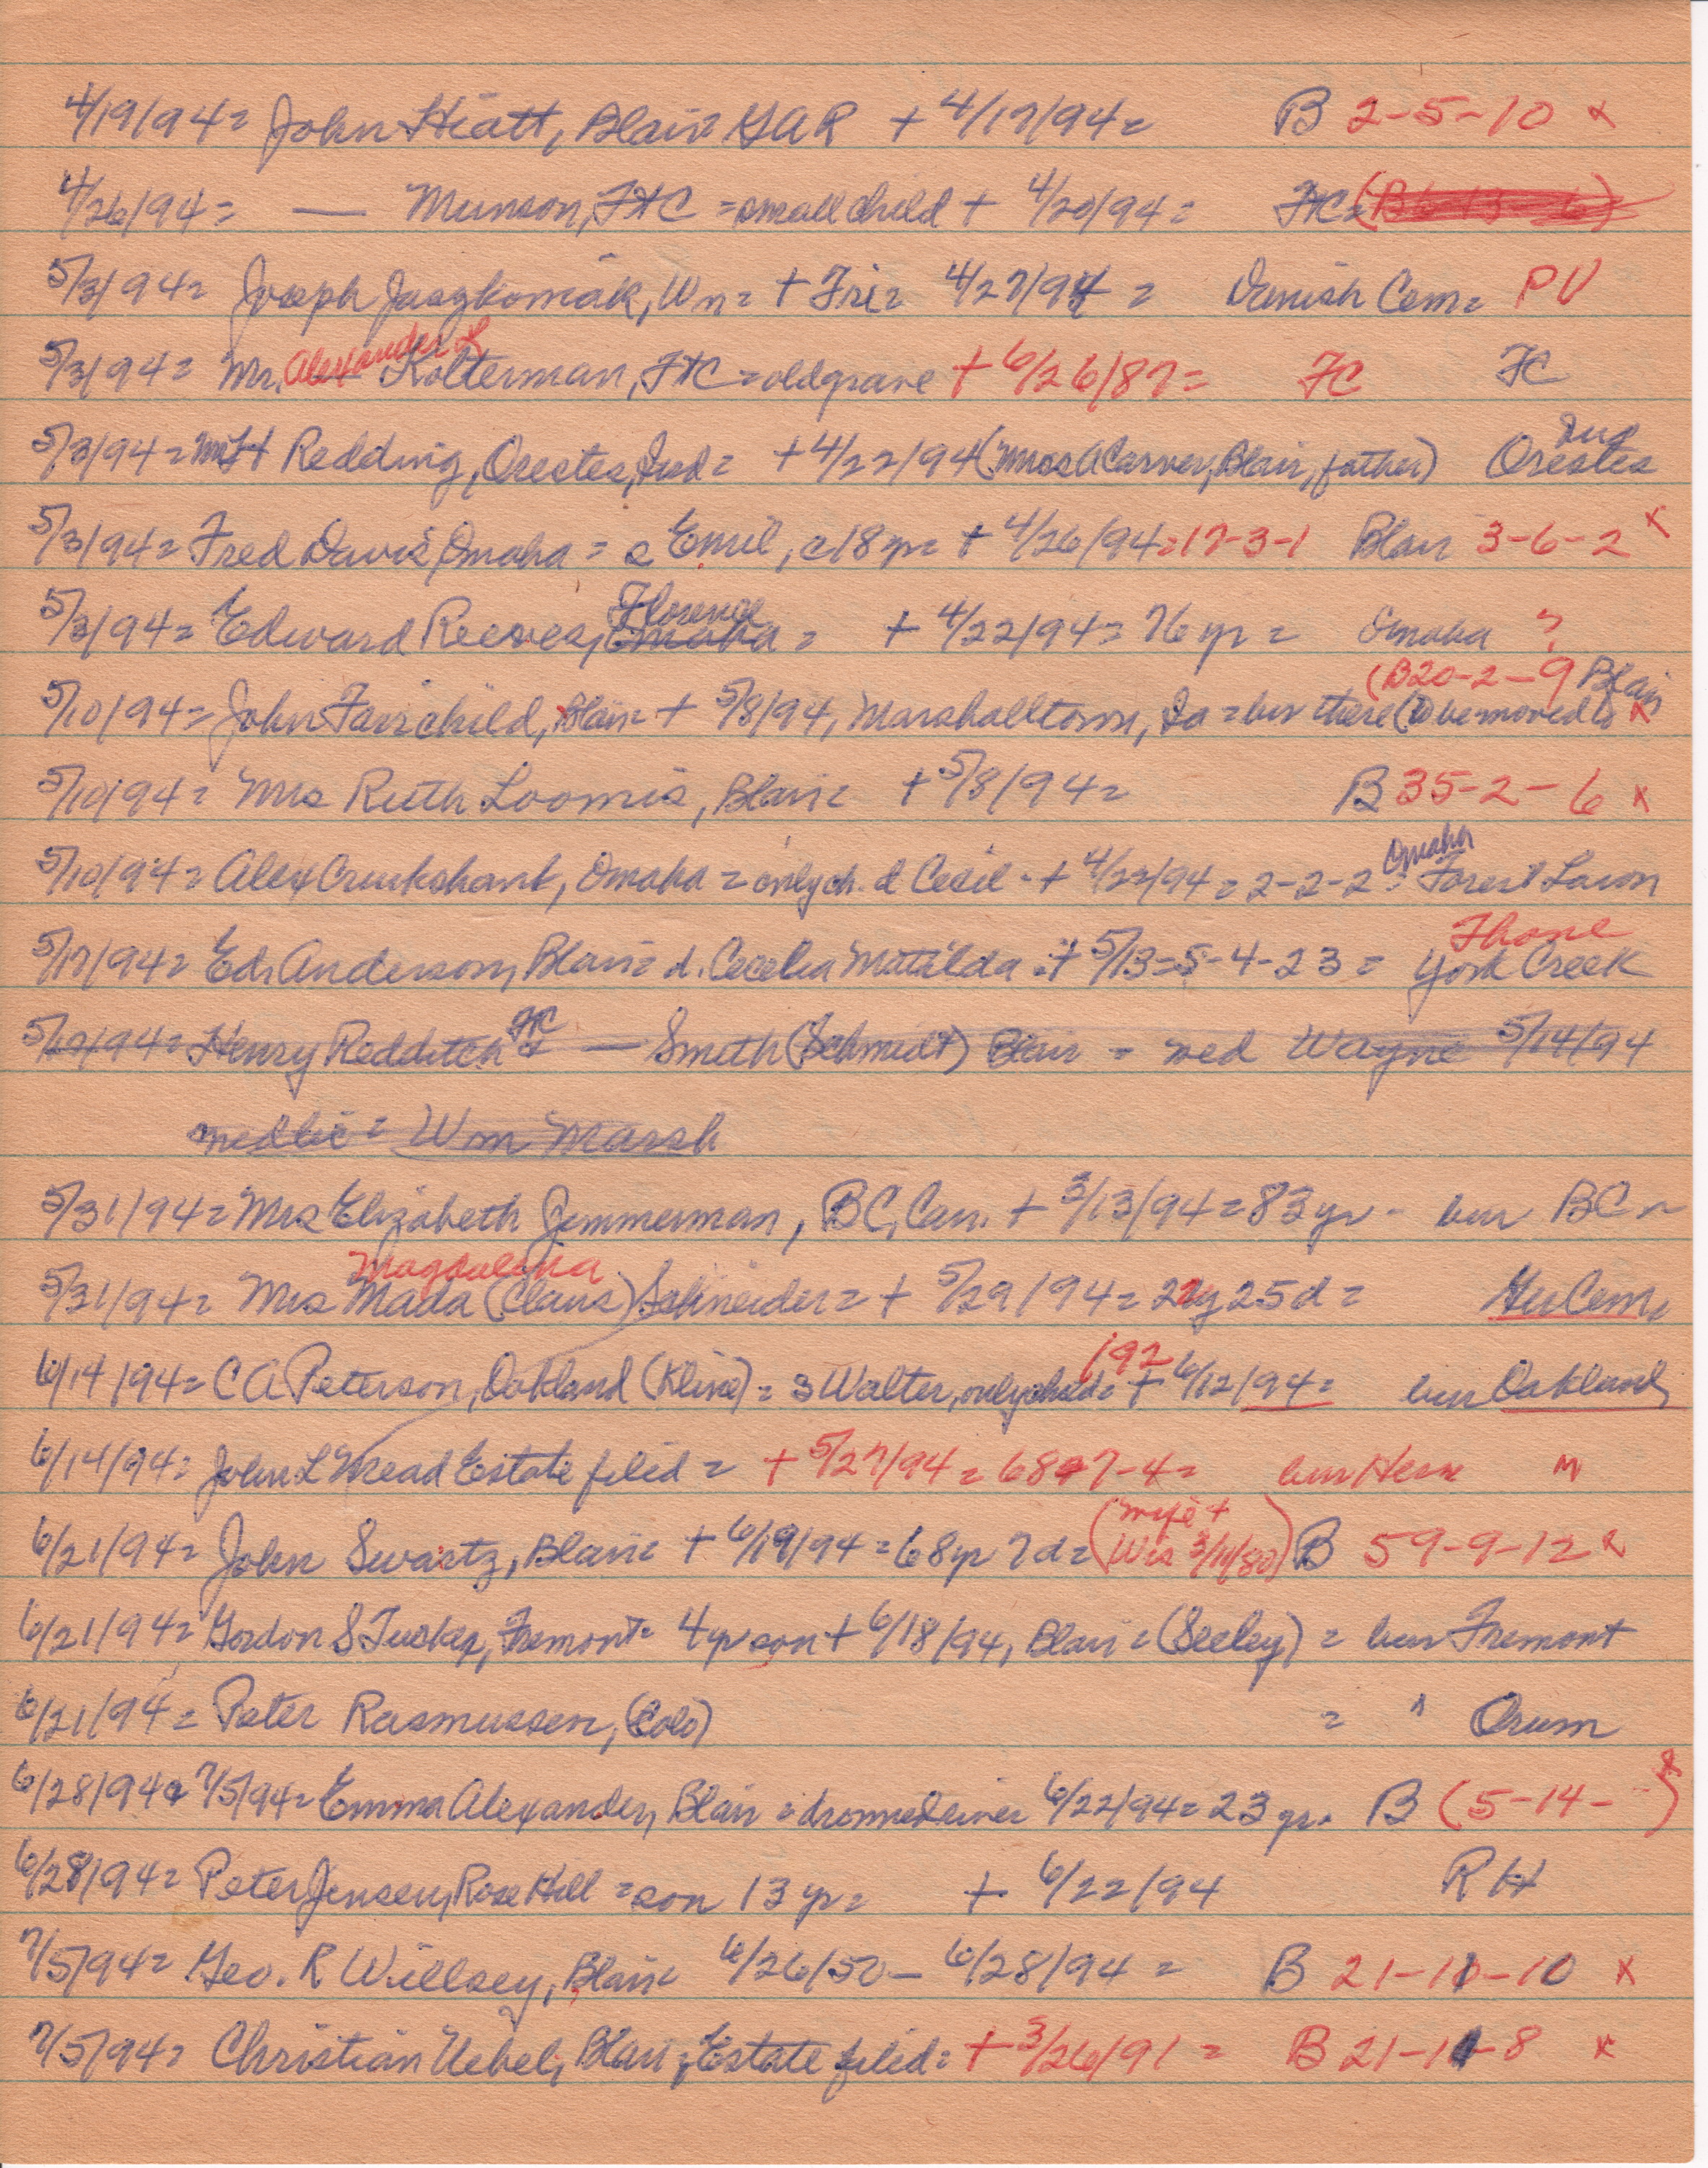 4/19/94= John Hiatt, Blair= GAR + 4/17/94= B 2-5-10 x
4/26/94= — Munson, FtC =small child + 4/20/94= FtC=
5/3/94= Joseph Jaszkowiak, Wn= + Fri= 4/27/94 = Danish Cem= PV
Alexander L
5/3/94= Mr. Kolterman, FtC =old grave + 6/26/87= FC FC
Ind
5/3/94= Redding, Orestes, Ind= +4/22/94 (Mrs A Carver, Blair, father) Orestes
5/3/94= Fred Davis, Omaha = s Emil, c18yr= + 4/26/94=17-3-1 Blair 3-6-2 x
Florence
5/3/94= Edward Reeves, Omaha = + 4/22/94= 76 yr = Omaha ?
(B20-2-9 Blair
5/10/94= John Fairchild, Blair= + 5/8/94, Marshalltown, Ia =bur there (to be moved to x
5/10/94= Mrs Ruth Loomis, Blair= + 5/8/94= B 35-2-6 x
Omaha
5/10/94= Alex Cruikshank, Omaha = only ch. d Cecil - + 4/22/94 = 2-2-2 = Forest Lawn
Thone
5/17/94= Ed. Anderson, Blair= d. Cecelia Matilda = + 5/13=5-4-23 = York Creek
FtC
5/17/94= Henry Redditch & — Smith (Schmidt) Blair = wed Wayne 5/14/94
med lic = Wm Marsh
5/31/94= Mrs Elizabeth Zimmerman, BC, Can. + 3/13/94=83yr - bur BC
Magdalena
5/31/94= Mrs Mada (Claus) Schneider= + 5/29/94= 22y 25d = Ger Cem,
(92
6/14/94= C A Peterson, Oakland (Kline) = s Walter, only child= + 6/12/94= bur Oakland
6/14/94= John L Mead Estate filed = + 5/27/94= 68-7-4= bur Her
(wife +
6/21/94= John Swartz, Blair= + 6/19/94 =68yr 7d= Wis 3/11/80) B 59-9-12 x
6/21/94= Gordon S Tucker, Fremont= 4yr son + 6/18/94, Blair = (Seeley) = bur Fremont
6/21/94 = Peter Rasmussen, (Colo) = " Orum
6/28/94 & 7/5/94= Emma Alexander, Blair = drowned river 6/22/94= 23 yr. B (5-14- -) x
6/28/94= Peter Jensen, Rose Hill =son 13 yr= + 6/22/94 RH
7/5/94= Geo. R Willsey, Blair= 6/26/50 - 6/28/94 = B 21-11-10 x
7/5/94= Christian Uebel, Blair, Estate filed= + 3/26/91 = B 21-11-8 x